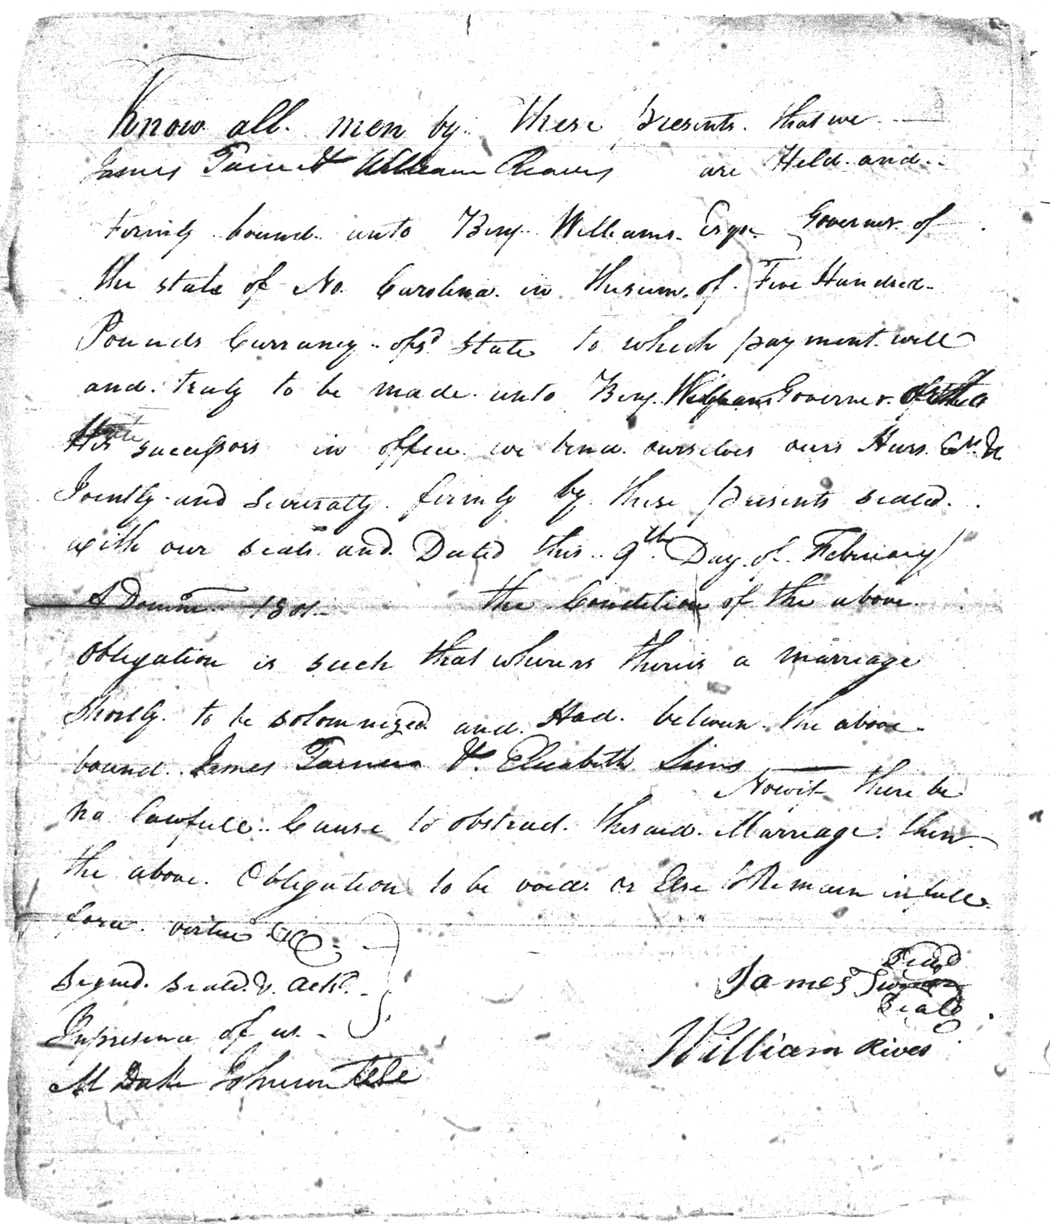 Know all men by these presents that we
James Turner & William Reaves are Held and
Firmly bound unto Benj. Williams Esqr. Governor of
the state of No. Carolina in the sum of Five Hundred
Pounds Currancy of sd. State to which payment will
and truly to be made unto Benj. Williams Governor
His successors in office we bind ourselves our Heirs Ex. &c
Jointly and Severally firmly by these presents sealed
with our seals and Dated this 9th Day of February
A Domini 1801 The Condition of the above
Obligation is such that whereas there is a marriage
Shortly to be solomnized and Had between the above
bound James Turner & Elizabeth Sims
Now if there be
no lawfull Cause to obstruct the said Marriage then
the above Obligation to be void or Else to Remain in full
force virtue &c
Signd. seald. & ackd.
In presence of us
James Turner Seald
William Rives Seald
M Duke Johnson Test